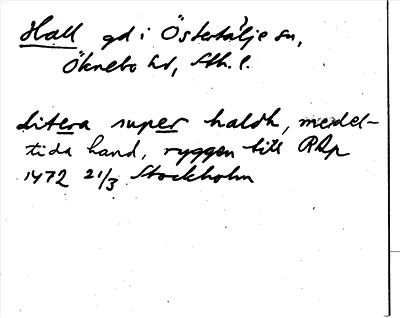 Hall gd i Östertälje sn,
Öknebo hd, Sth. l.
litera super haldh, medel-
tida hand, ryggen till RAp
1472 21/3 Stockholm